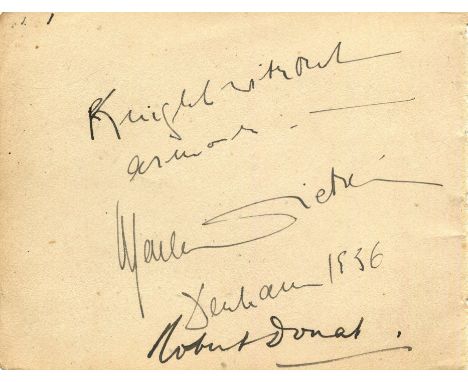 Knight without
armour.
Marlene Dietrich
Denham 1936
Robert Donat.